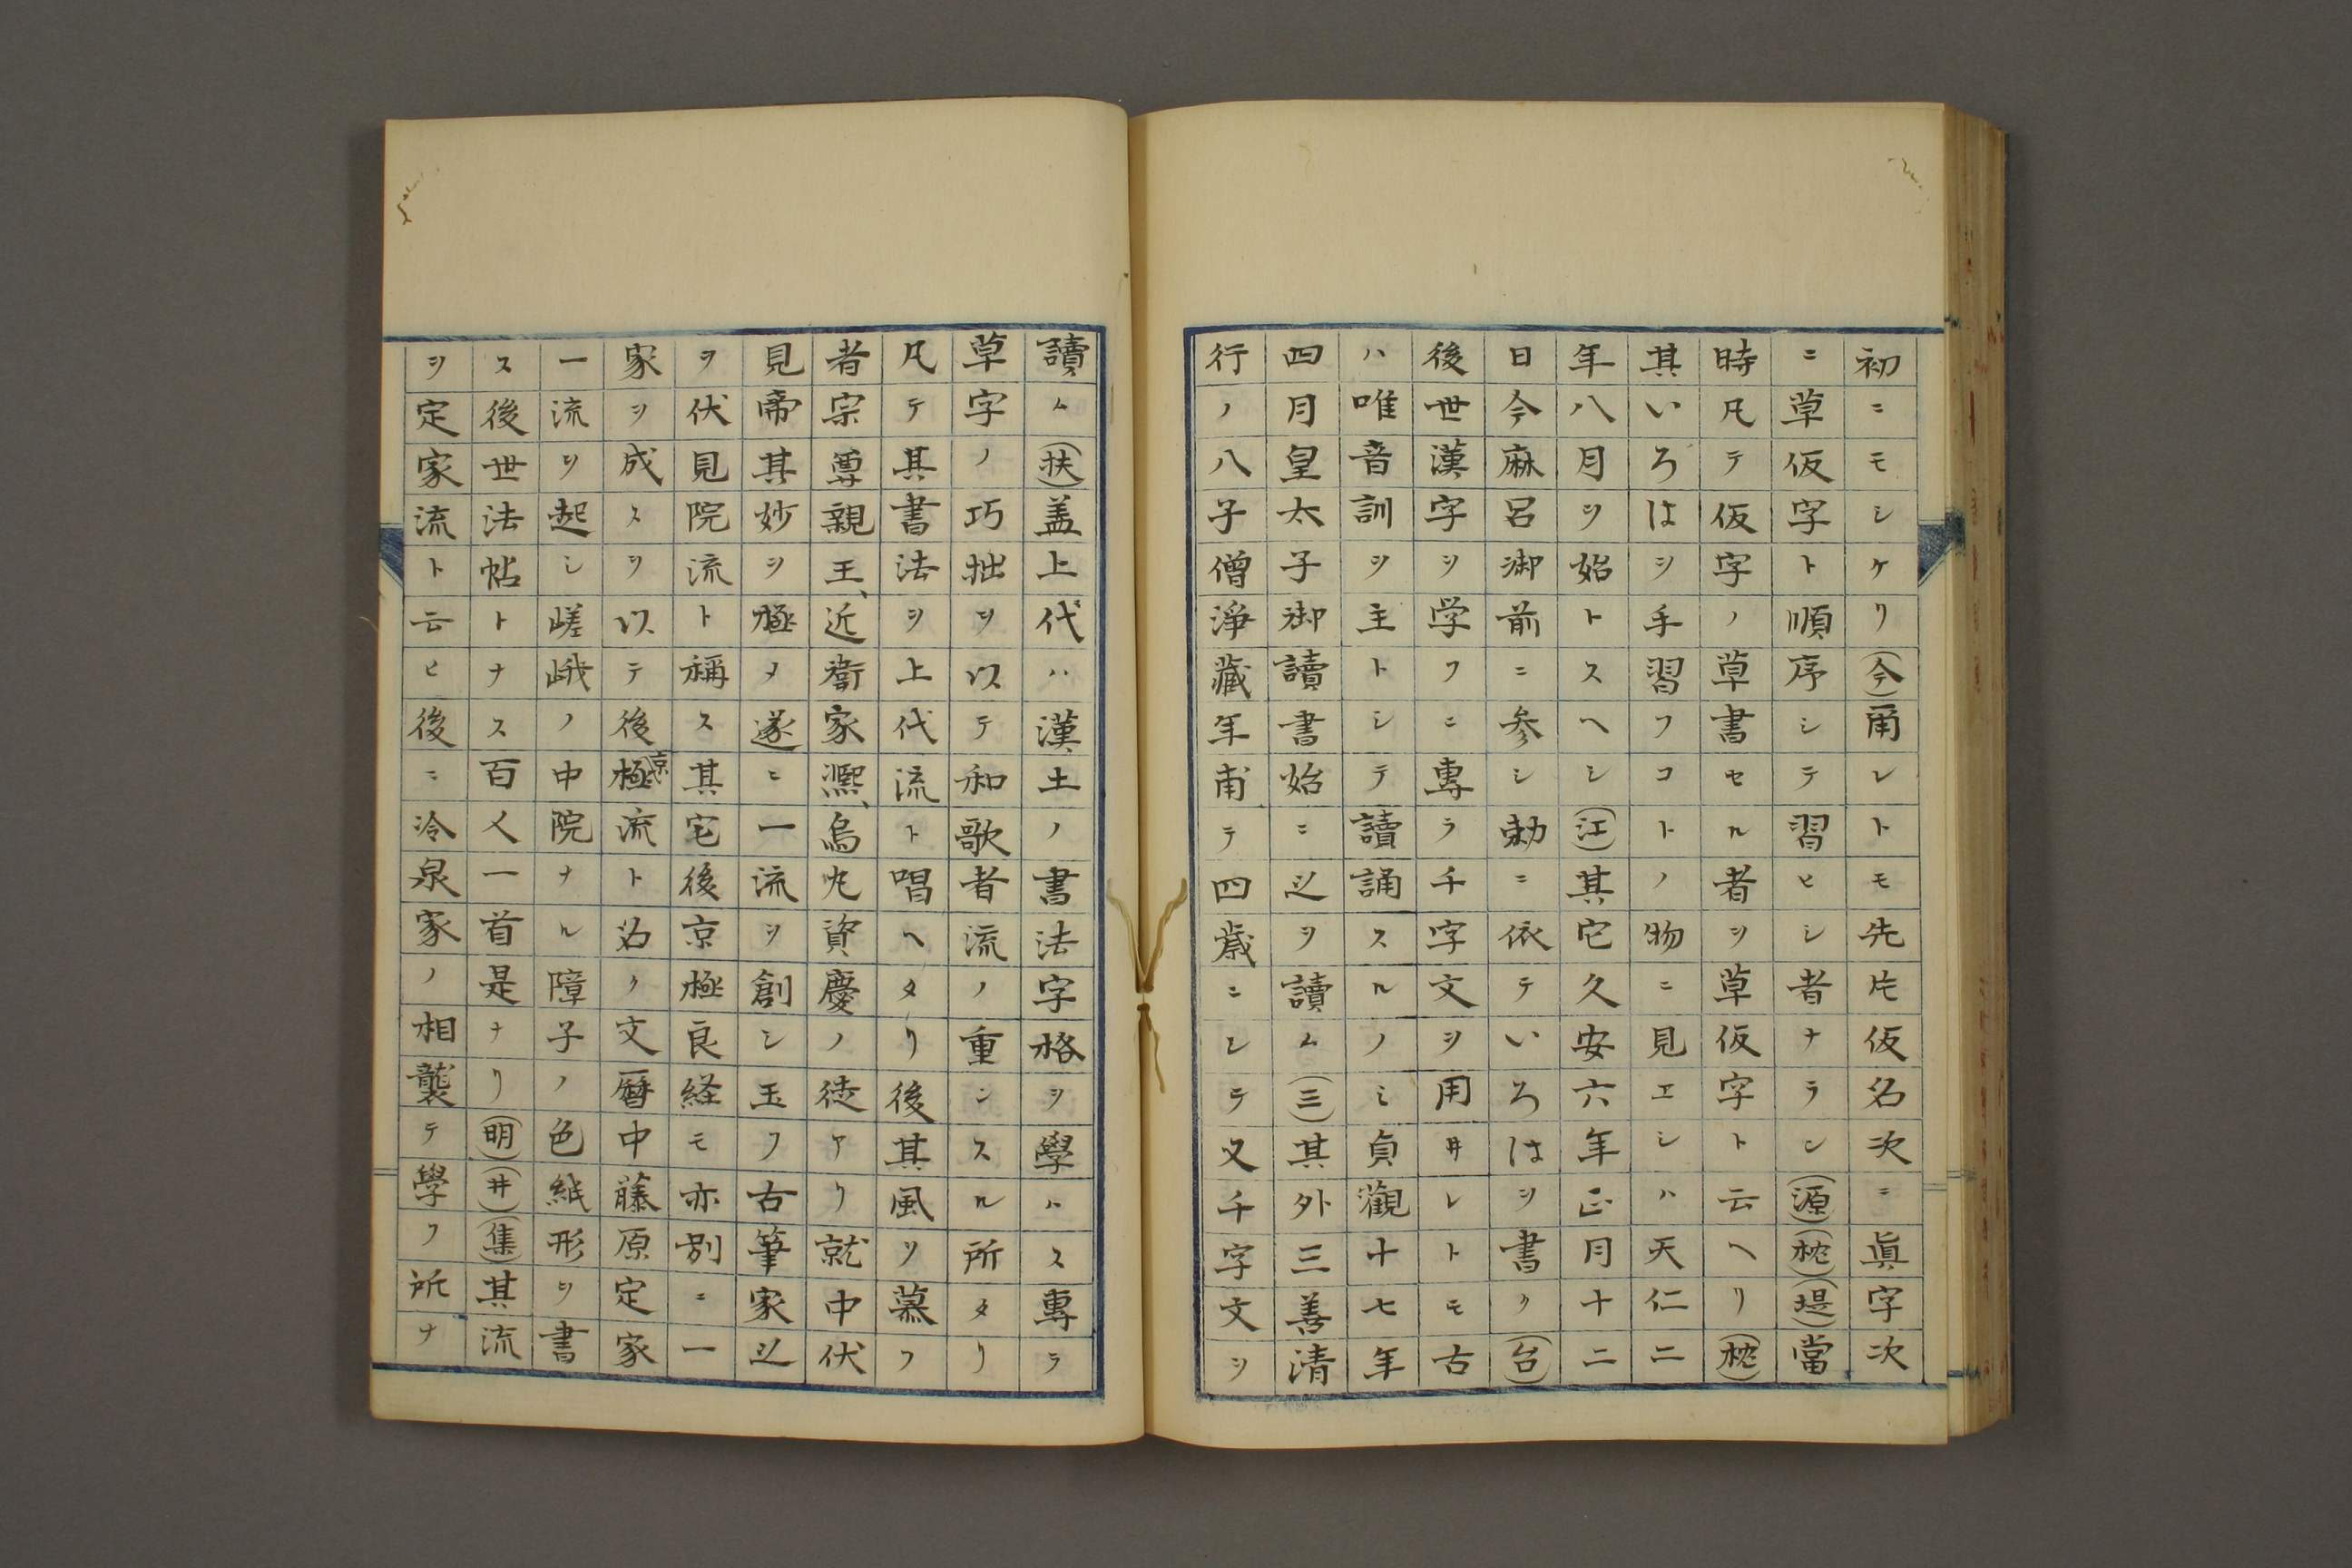 初ニモシケリ(今)甫レトモ先片仮名次ニ眞字次
ニ草仮字ト順序シテ習ヒシ者ナラン(源)(枕)(堤)當
時凡テ仮字ノ草書セル者ヲ草仮字ト云ヘリ(枕)
其いろはヲ手習フコトノ物ニ見エシハ天仁二
年八月ヲ始トスヘシ(江)其它久安六年正月十二
日今麻呂御前ニ参シ勅ニ依テいろはヲ書ク(台)
後世漢字ヲ学フニ專ラ千字文ヲ用井レトモ古
ハ唯音訓ヲ主トシテ讀誦スルノミ貞觀十七年
四月皇太子御讀書始ニ之ヲ讀ム(三)其外三善清
行ノ八子僧淨藏年甫テ四歳ニシテ又千字文ヲ
讀ム(扶)盖上代ハ漢土ノ書法字格ヲ學ハス專ラ
草字ノ巧拙ヲ以テ和歌者流ノ重ンスル所タリ
凡テ其書法ヲ上代流ト唱ヘタリ後其風ヲ慕フ
者宗尊親王、近衞家凞、烏丸資慶ノ徒アリ就中伏
見帝其妙ヲ極メ遂ニ一流ヲ創シ玉フ古筆家之
ヲ伏見院流ト稱ス其它後京極良経モ亦別ニ一
家ヲ成スヲ以テ後京極流ト名ク文暦中藤原定家
一流ヲ起シ嵯峨ノ中院ナル障子ノ色紙形ヲ書
ス後世法帖トナス百人一首是ナリ(明)(井)(集)其流
ヲ定家流ト云ヒ後ニ冷泉家ノ相襲テ學フ所ナ